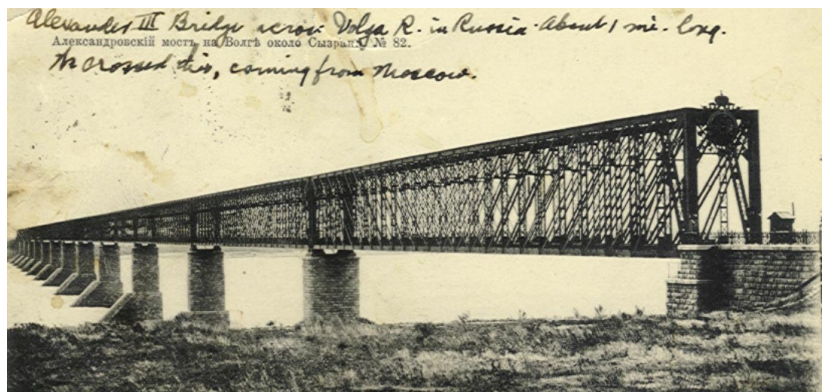 Alexander III Bridge across Volga R. in Russia. About 1 mi. long.
Александровскій мостъ на Волгѣ около Сызрани. № 82.
We crossed this, coming from Moscow.